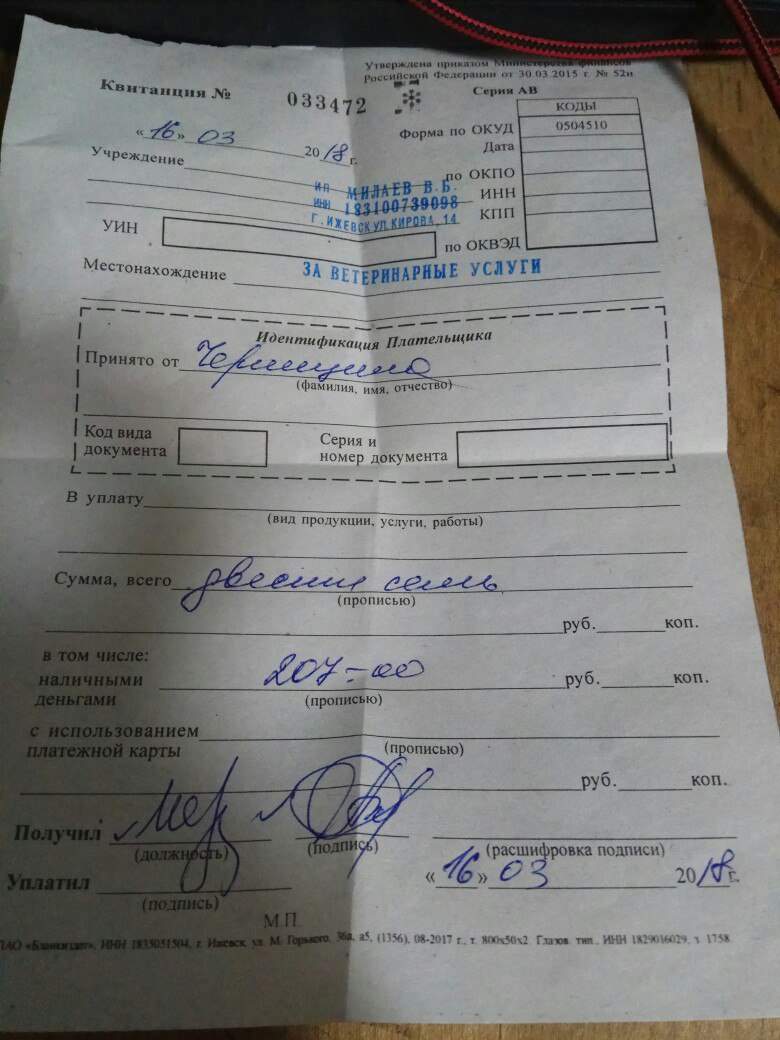 Утверждена приказом Министерства финансов
Российской Федерации от 30.03.2015 г. № 52н
Квитанция № 033472 Серия АВ
КОДЫ
Форма по ОКУД 0504510
«16» 03 2018 г.
Дата
Учреждение
по ОКПО
ИП МИЛАЕВ В.Б.
ИНН 183100739098
Г. ИЖЕВСК УЛ. КИРОВА, 14
ИНН
КПП
УИН
по ОКВЭД
Местонахождение ЗА ВЕТЕРИНАРНЫЕ УСЛУГИ
Идентификация Плательщика
Принято от
(фамилия, имя, отчество)
Код вида
документа
Серия и
номер документа
В уплату
(вид продукции, услуги, работы)
Сумма, всего двести семь
(прописью)
руб. коп.
в том числе:
наличными
деньгами 207-00 руб. коп.
(прописью)
с использованием
платежной карты
(прописью)
руб. коп.
Получил
(должность) (подпись) (расшифровка подписи)
Уплатил «16» 03 2018 г.
(подпись)
М.П.
ПАО «Бланкиздат», ИНН 1835051504, г. Ижевск, ул. М. Горького, 36а, а5, (1356), 08-2017 г., т. 800х50х2. Глазов. тип., ИНН 1829016029, з. 1758.